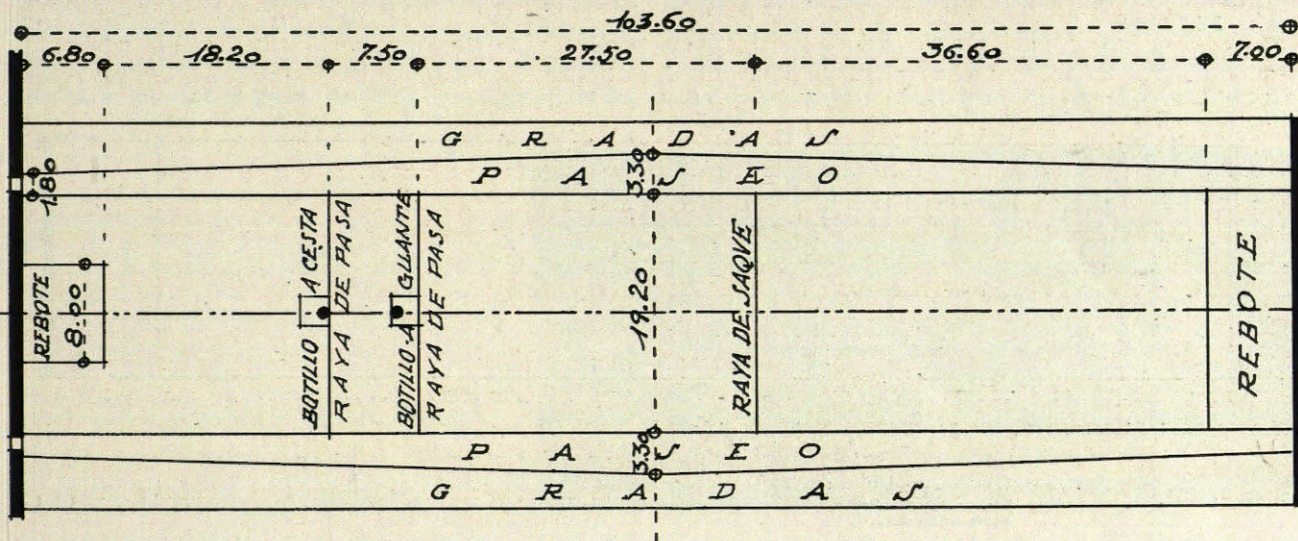 103.60
6.80 18.20 7.50 27.50 36.60 7.00
G R A D A S
1.80
P A S E O
3.30
REBOTE
8.00
BOTILLO A CESTA
RAYA DE PASA
BOTILLO A GUANTE
RAYA DE PASA
19.20
RAYA DE SAQVE
REBOTE
P A S E O
3.30
G R A D A S